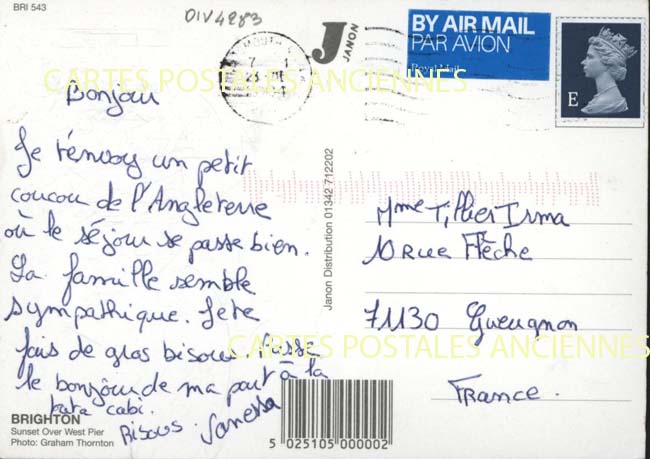 BRI 543
DIV4283
J
JANON
BY AIR MAIL
PAR AVION
Royal Mail
E
7 1
CARTES POSTALES ANCIENNES
Bonjour
Je t'envoy un petit
coucou de l'Angleterre
où le séjour se passe bien.
La famille semble
sympathique. Je te
fais de gros bisous. Passe
le bonjour de ma part à la
cabi.
Bisous. Vanessa
Janon Distribution 01342 712202
Mme Tillier Irma
10 rue Flèche
71130 Gueugnon
France.
CARTES POSTALES ANCIENNES
BRIGHTON
Sunset Over West Pier
Photo: Graham Thornton
5 025105 000002